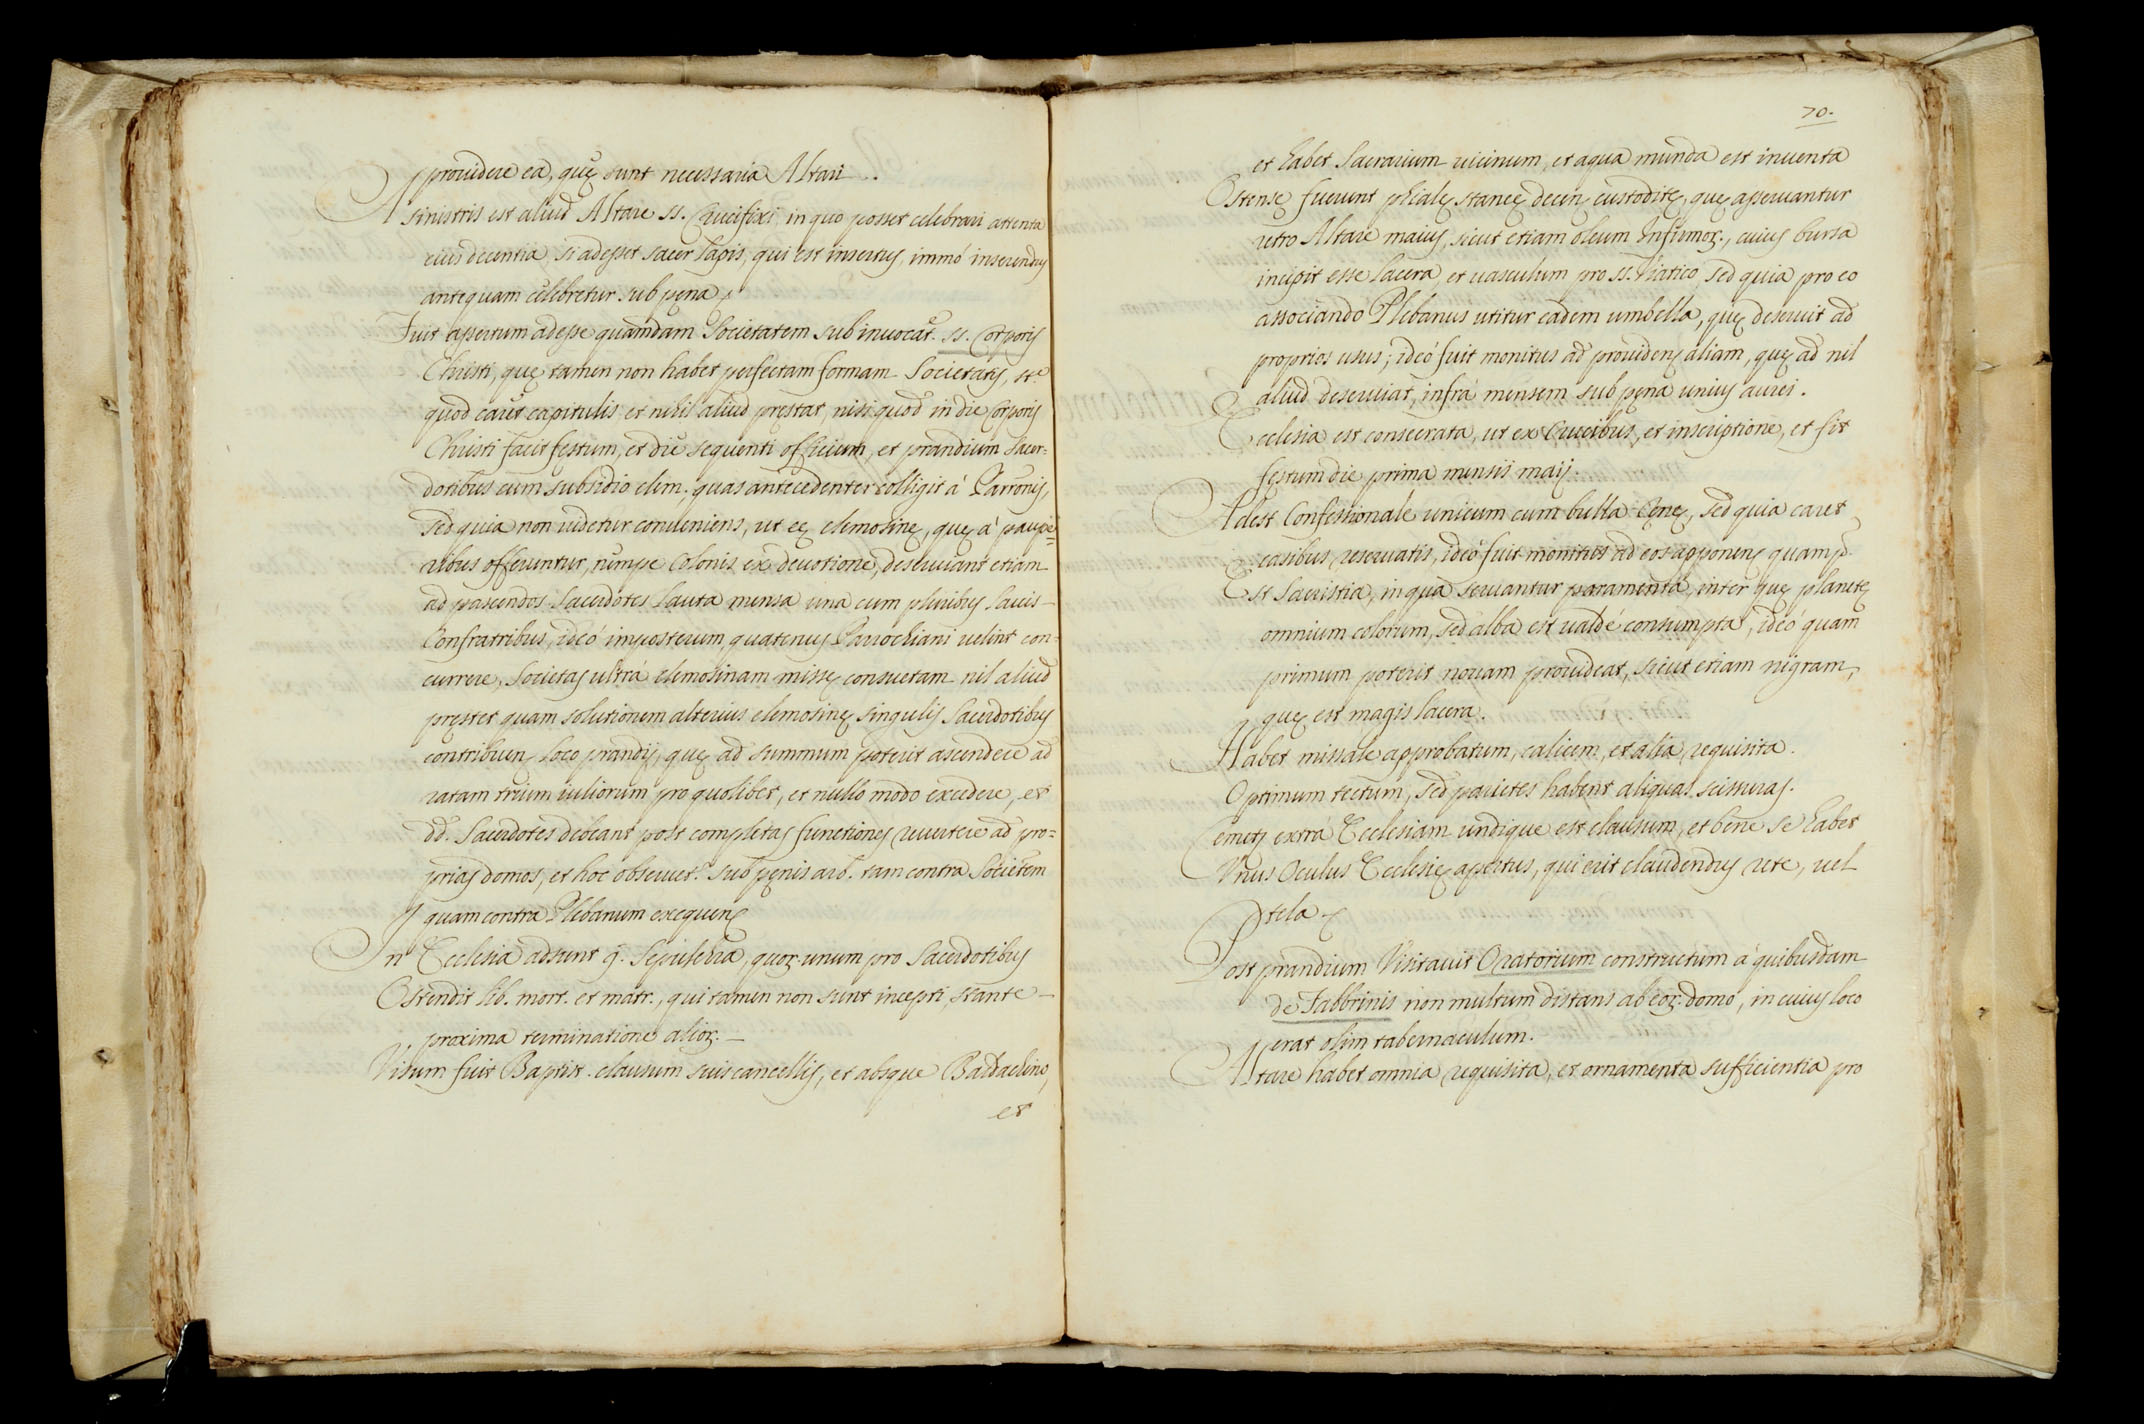 prouidere ea, quę sunt necessaria Altari.
A sinistris est aliud Altare SS. Crucifixi in quo posset celebrari attenta
eius decentia si adesset sacer lapis, qui est insertus, immò inserendus
antequam celebretur sub pęna
Fuit assertum adesse quamdam Societatem sub inuocat. SS. Corporis
Christi, quę tamen non habet perfectam formam Societatis,
quod caret capitulis et nihil aliud pręstat nisi quod in die Corporis
Christi facit festum, et die sequenti officium, et prandium Sacer-
dotibus cum subsidio elem. quas antecedenter colligit à Patronis,
sed quia non uidetur conueniens, ut eę elemosinę, quę à paupe=
ribus offeruntur, nempe Colonis ex deuotione, deseruiant etiam
ad pascendos Sacerdotes lauta mensa una cum pluribus laicis
Confratribus, ideò imposterum, quatenus Parrochiani uelint con=
currere, Societas ultrà elemosinam missę consuetam nil aliud
pręstet quam solutionem alterius elemosinę singulis Sacerdotibus
contribuen. loco prandij, quę ad summum poterit ascendere ad
ratam trium iuliorum pro quolibet, et nullo modo excedere, et
dd. Sacerdotes debeant post completas functiones reuertere ad pro=
prias domos, et hoc obseruet. sub pęnis arb. tam contra Societem
quam contra Plebanum exequen.
In Ecclesia adsunt 9. Sepulchra, quor. unum pro Sacerdotibus
Ostendit lib. mort. et matr., qui tamen non sunt incepti, stante
proxima terminatione alior.
Visum fuit Baptist. clausum suis cancellis, et absque Baldachino,
et
70.
et habet Sacrarium uicinum, et aqua munda est inuenta
Ostensę fuerunt phialę staneę decen. custoditę, quę asseruantur
retro Altare maius, sicut etiam oleum Infirmor., cuius bursa
incipit esse lacera, et uasculum pro SS. Viatico, sed quia pro eo
associando Plebanus utitur eadem umbella, quę deseruit ad
proprios usus; ideò fuit monitus ad prouiden. aliam, quę ad nil
aliud deseruiat, infrà mensem sub pęna unius aurei.
Ecclesia est consecrata, ut ex Crucibus, et inscriptione, et fit
festum die prima mensis maij.
Adest Confessionale unicum cum bulla Cęnę, sed quia caret
casibus reseruatis, ideò fuit monitus ad eos apponen. quamp.
Est Sacristia, in qua seruantur paramenta, inter quę planetę
omnium colorum, sed alba est ualdè consumpta, ideò quam
primum poterit nouam prouideat, sicut etiam nigram,
quę est magis lacera.
Habet missale approbatum, calicem, et alia requisita.
Optimum tectum, sed parietes habent aliquas scissuras.
Cemet. extrà Ecclesiam undique est clausum, et bene se habet
Vnus Oculus Ecclesię apertus, qui erit claudendus rete, uel
tela
Post prandium Visitauit Oratorium constructum à quibusdam
de Fabbrinis non multum distans ab eor. domo, in cuius loco
erat olim tabernaculum.
Altare habet omnia requisita, et ornamenta sufficientia pro